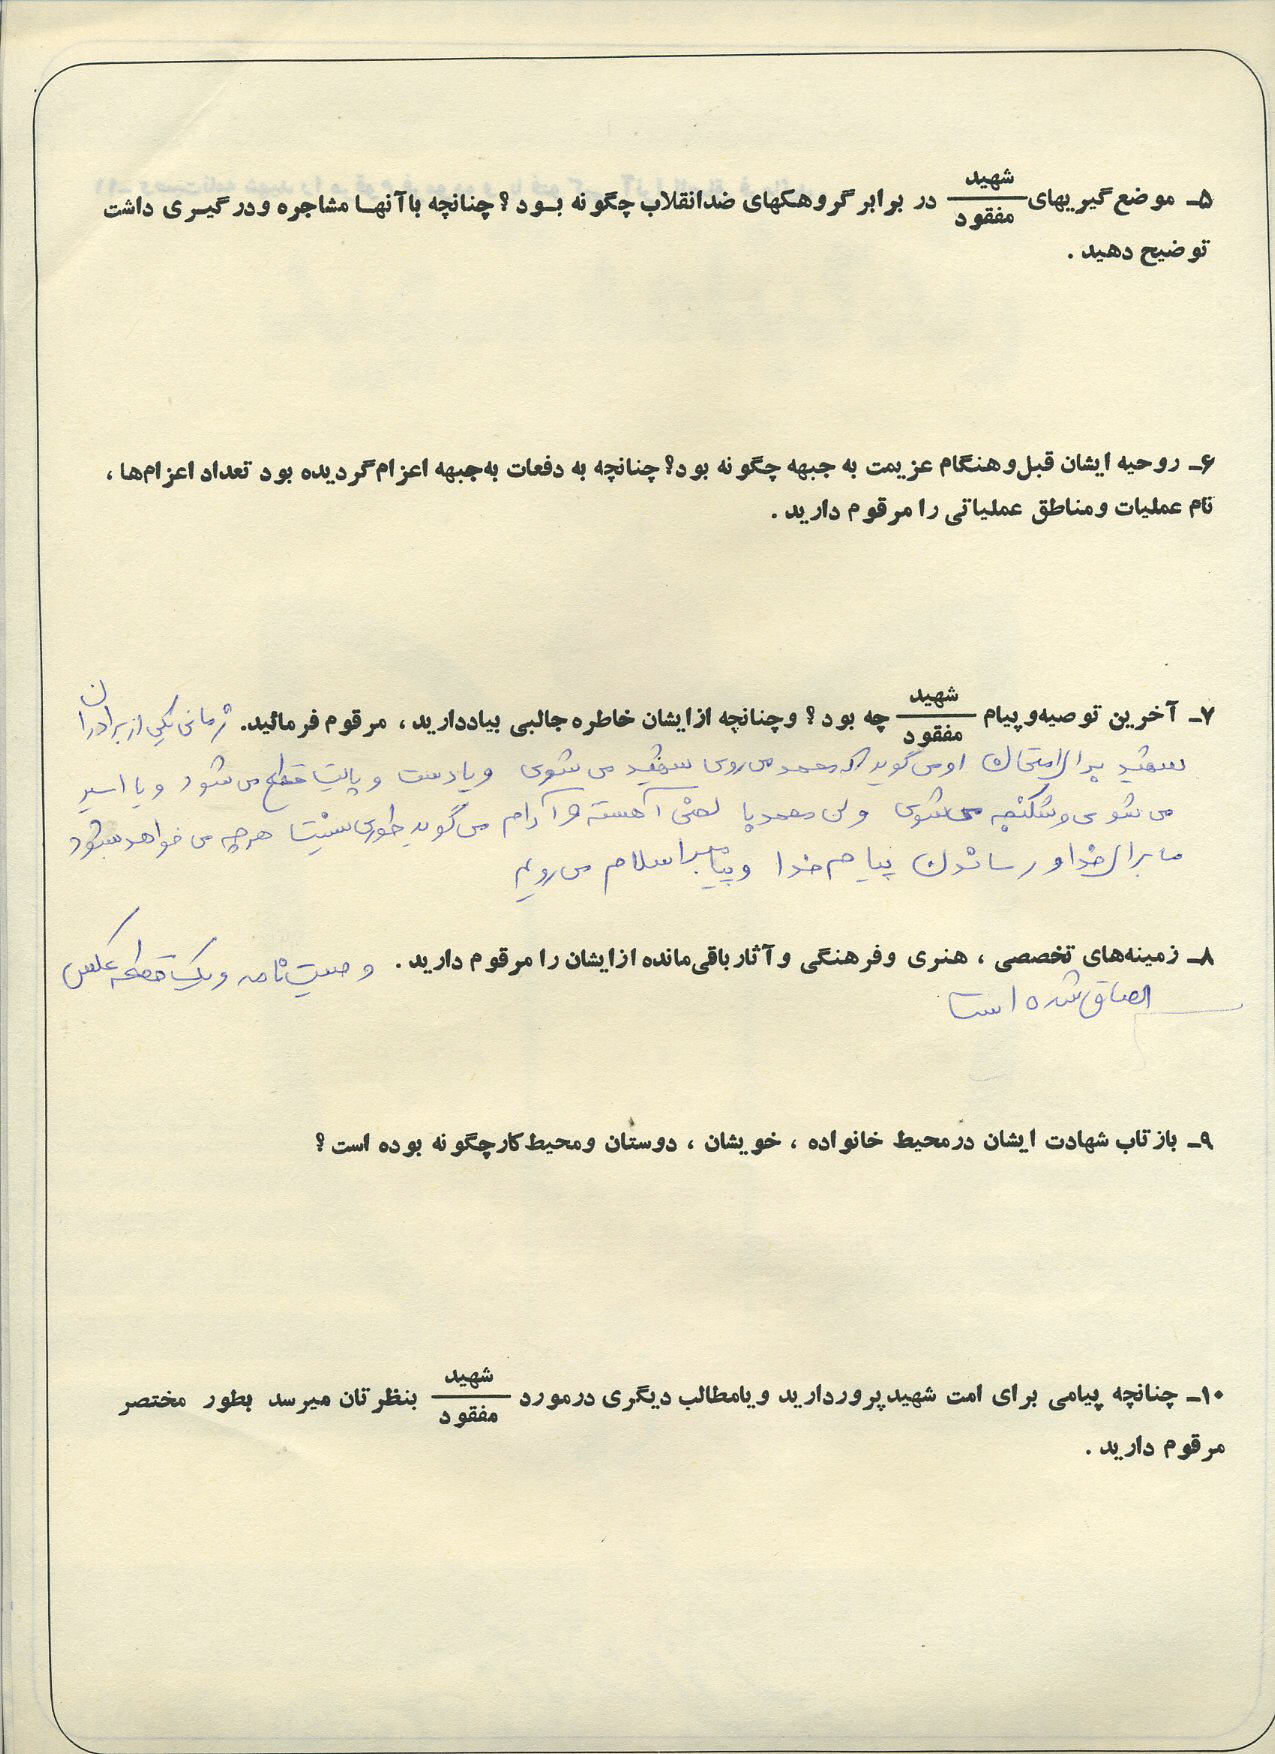 ۵ـ موضع‌گیریهای شهید / مفقود در برابر گروهکهای ضدانقلاب چگونه بود؟ چنانچه باآنها مشاجره ودرگیری داشت
توضیح دهید .
۶ـ روحیه ایشان قبل‌وهنگام عزیمت به جبهه چگونه بود؟ چنانچه به دفعات به‌جبهه اعزام‌گردیده بود تعداد اعزام‌ها ،
نام عملیات ومناطق عملیاتی را مرقوم دارید .
۷ـ آخرین توصیه‌وپیام شهید / مفقود چه بود؟ وچنانچه ازایشان خاطره‌جالبی بیاددارید ، مرقوم فرمائید. زمانی یکی از برادران
شهید برای امتحان او می گوید که محمد می روی شهید می شوی و یا دست و پایت قطع می شود و یا اسیر
می شوی و شکنجه می شوی ولی محمد با لحنی آهسته و آرام می گوید طوری نیست هر چه می خواهد بشود
ما برای خدا و رساندن پیام خدا و پیامبر اسلام می رویم
۸ـ زمینه‌های تخصصی ، هنری وفرهنگی وآثارباقی‌مانده ازایشان را مرقوم دارید . وصیت نامه و یک قطعه عکس
الصاق شده است
۹ـ بازتاب شهادت ایشان درمحیط خانواده ، خویشان ، دوستان ومحیط‌کارچگونه بوده است؟
۱۰ـ چنانچه پیامی برای امت شهیدپروردارید ویامطالب دیگری درمورد شهید / مفقود بنظرتان میرسد بطور مختصر
مرقوم دارید .